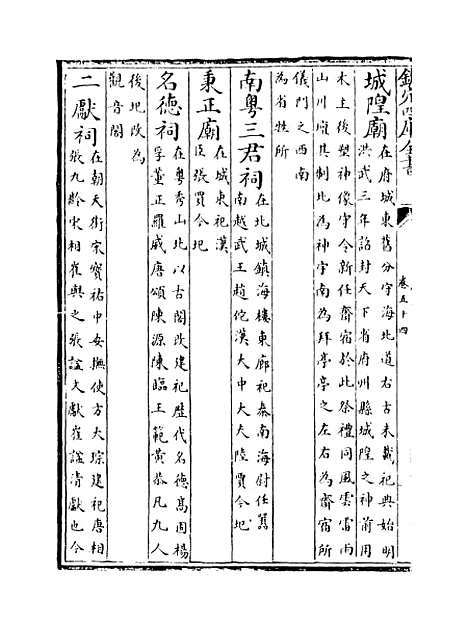 欽定四庫全書 卷五十四
城隍廟 在府城東舊分守海北道右古未載祀典始明
洪武三年詔封天下省府州縣城隍之神前用
木主後塑神像守令新任齋宿於此祭禮同風雲雷雨
山川壇其制北為神宇南為拜亭亭之左右為齋宿所
儀門之西南
為省牲所
南粵三君祠 在北城鎮海樓東廊祀秦南海尉任囂
南越武王趙佗漢大中大夫陸賈今圯
秉正廟 在城東祀漢
臣張賈今圯
名德祠 在粵秀山北以古閣改建祀歷代名德高固楊
孚董正羅威唐頌陳源陳臨王範黃恭凡九人
後圯改為
觀音閣
二獻祠 在朝天街宋寶祐中安撫使方大琮建祀唐相
張九齡宋相崔與之張諡文獻崔諡清獻也今